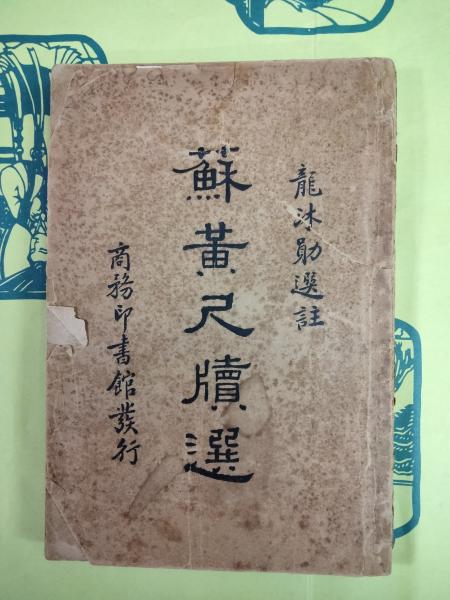 龍沐勛選註
蘇黃尺牘選
商務印書館發行